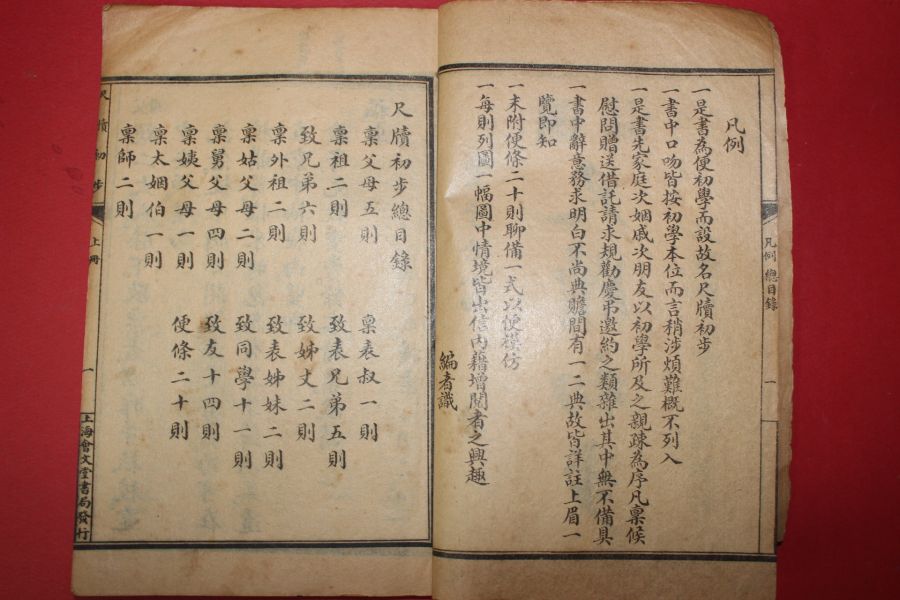 凡例
一是書為便初學而設故名尺牘初步
一書中口吻皆按初學本位而言稍涉煩難概不列入
一是書先家庭次姻戚次朋友以初學所及之親疎為序凡稟候
慰問贈送借託請求規勸慶弔邀約之類雜出其中無不備具
一書中辭意務求明白不尚典贍間有一二典故皆詳註上眉一
覽即知
一末附便條二十則聊備一式以便模仿
一每則列圖一幅圖中情境皆出信內藉增閱者之興趣
編者識
凡例 總目錄
一
尺牘初步總目錄
稟父母五則
稟祖二則
致兄弟六則
稟外祖二則
稟姑父母二則
稟舅父母四則
稟姨父母一則
稟太姻伯一則
稟師二則
稟表叔一則
致表兄弟五則
致姊丈二則
致表姊妹二則
致同學十一則
致友十四則
便條二十則
尺牘初步
上冊
一
上海會文堂書局發行